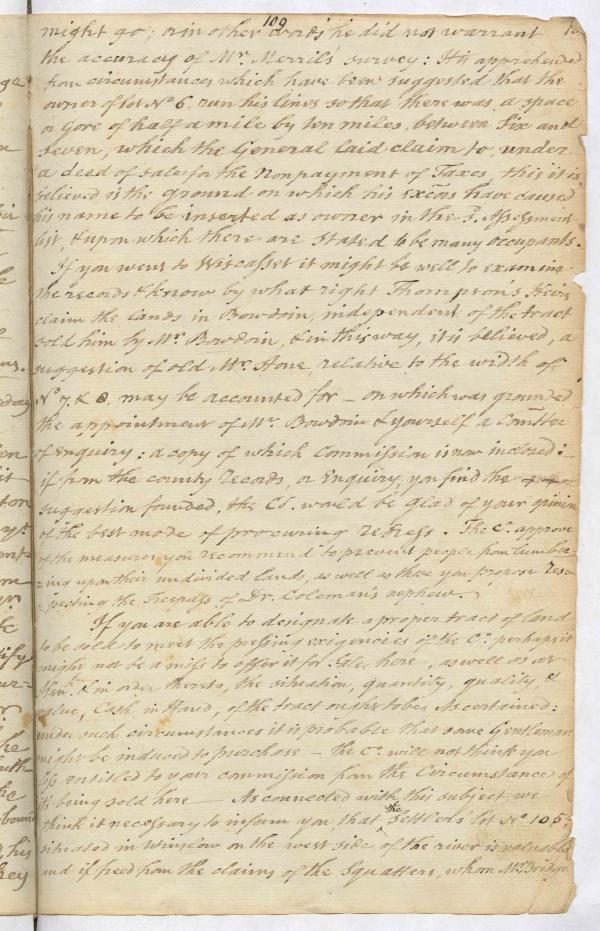 109
might go; or in other words he did not warrant
the accuracy of Mr. Merril's survey: It is apprehended
from circumstances which have been suggested that the
owner of lot No 6. run his lines so that there was a space
or Gore of half a mile by ten miles, between Six and
Seven, which the General laid claim to, under
a deed of sales for the Nonpayment of Taxes, this it is
believed is the ground on which his excors have caused
his name to be inserted as owner in the Assessment
list, & upon which there are stated to be many occupants.
If you went to Wiscasset it might be well to examine
the records & know by what right Thompson's Heirs
claim the lands in Bowdoin, independent of the tract
sold him by Mr. Bowdoin, & in this way, it is believed, a
suggestion of old Mr. Hone relative to the width of
No 7, & 8, may be accounted for – on which was grounded
the appointment of Mr. Bowdoin & yourself a Comttee
of Enquiry: a copy of which Commission is now inclosed:
if from the county records, or Enquiry, you find the
suggestion founded, the Co. would be glad of your opinion
of the best mode of procuring redress. The Co. approve
of the measures you recommend to prevent people from lumber-
-ing upon their undivided lands, as well as that you propose res-
-pecting the Trespass of Dr. Coleman's nephew.
If you are able to designate a proper tract of land
to be sold to meet the pressing exigencies of the Co. perhaps it
might not be amiss to offer it for sale here, as well as at
& in order thereto, the situation, quantity, quality, &
value, Cash in Hand, of the tract ought to be Ascertained:
under such circumstances it is probable that some Gentleman
might be induced to purchase – the Co. will not think you
less entitled to your commission from the Circumstance of
its being sold here — As connected with this subject, we
think it necessary to inform you, that the Settler's lot No 105,
situated in Winslow on the west side of the river is valuable
and if freed from the claims of the Squatters, whom Mr. Bridge